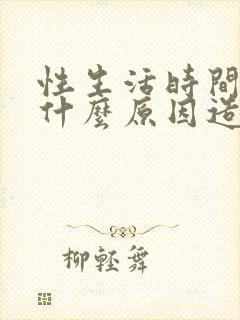 性生活時間
什麼原因造
柳輕舞